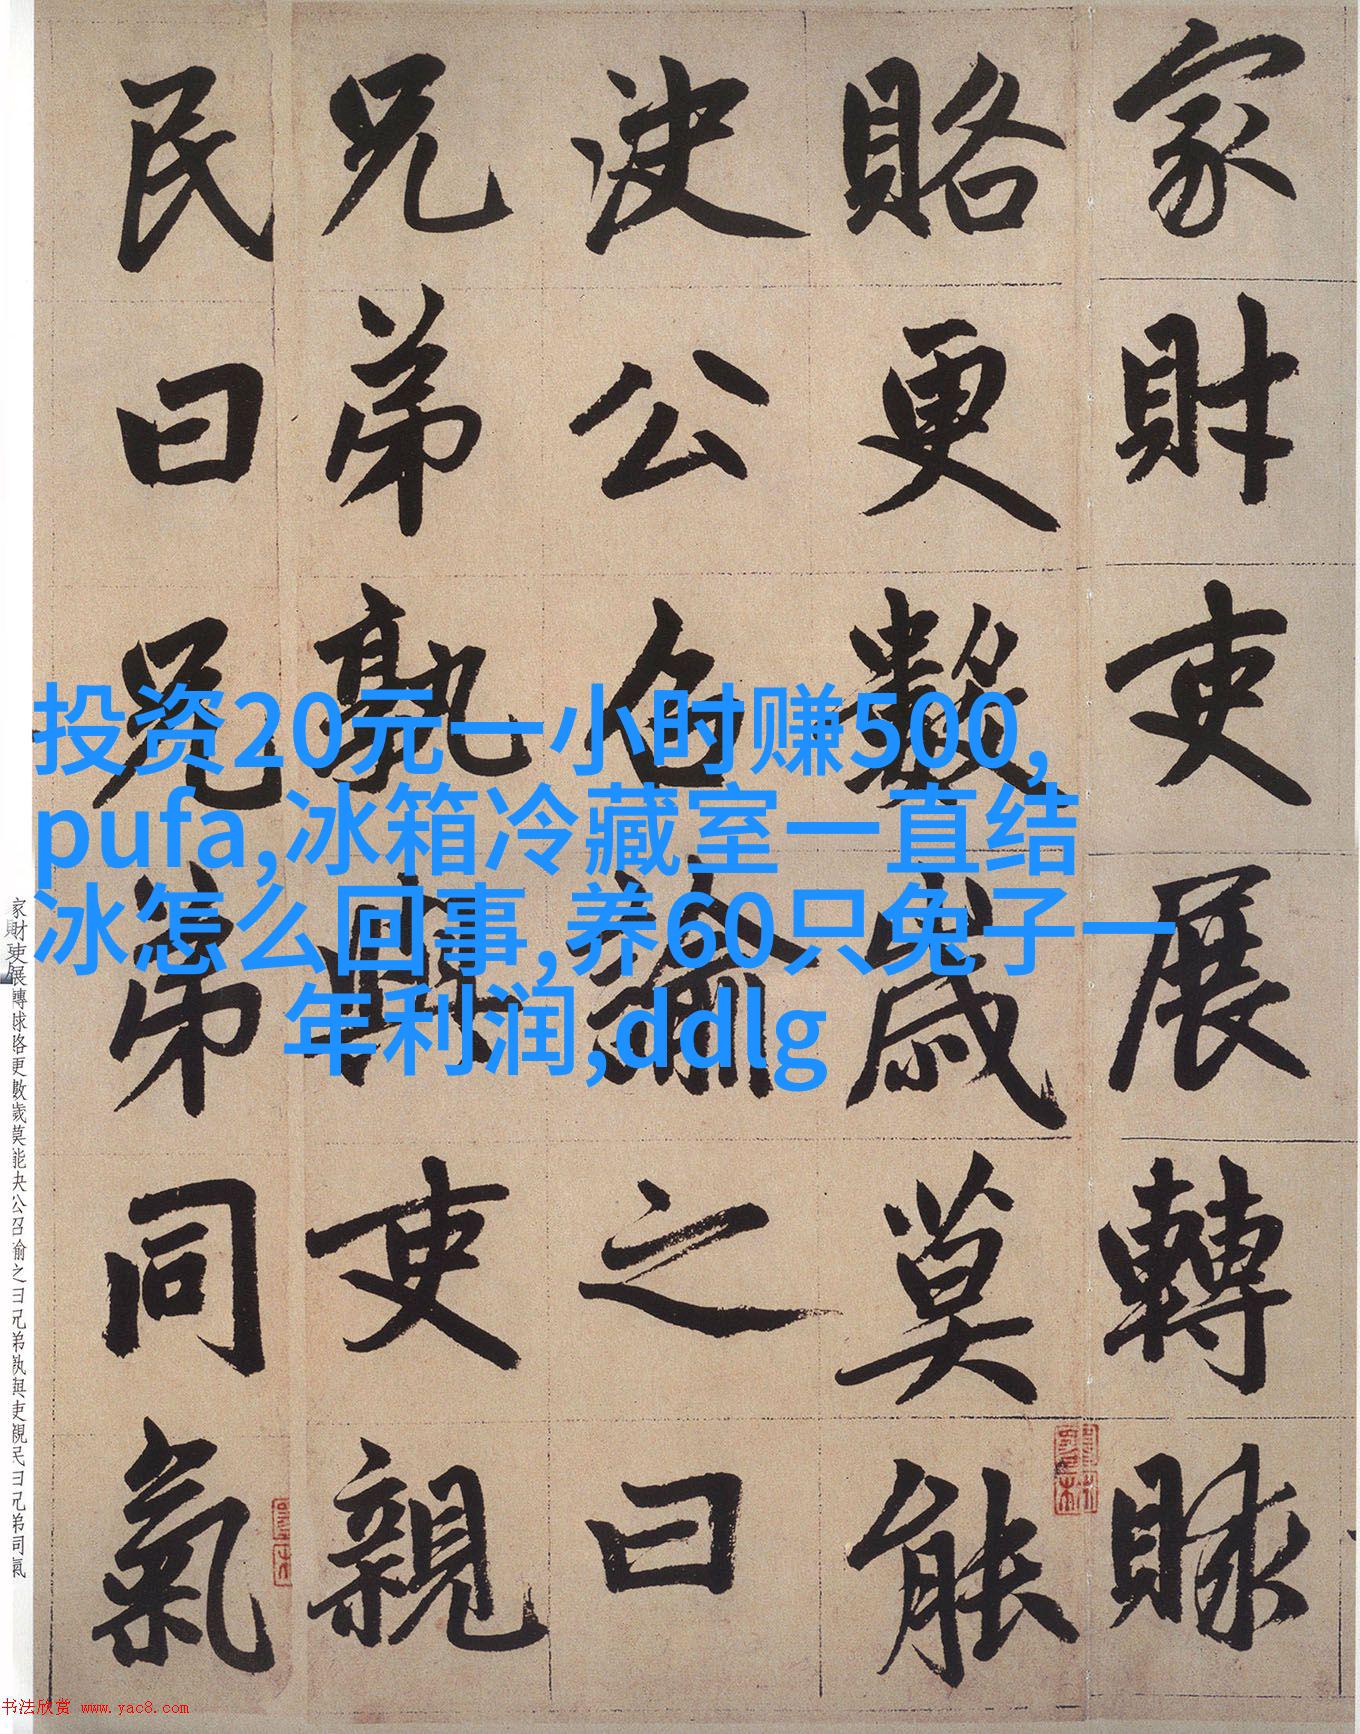 家財吏展轉賕
賂更數歲莫能
決公召諭之曰
兄弟孰與吏親
民曰兄弟同氣
投资20元一小时赚500,
pufa,冰箱冷藏室一直结
冰怎么回事,养60只兔子一
年利润,ddlg
家財吏展轉賕賂更數歲莫能决公召諭之曰兄弟孰與吏親民曰兄弟同氣
书法欣赏 www.yac8.com